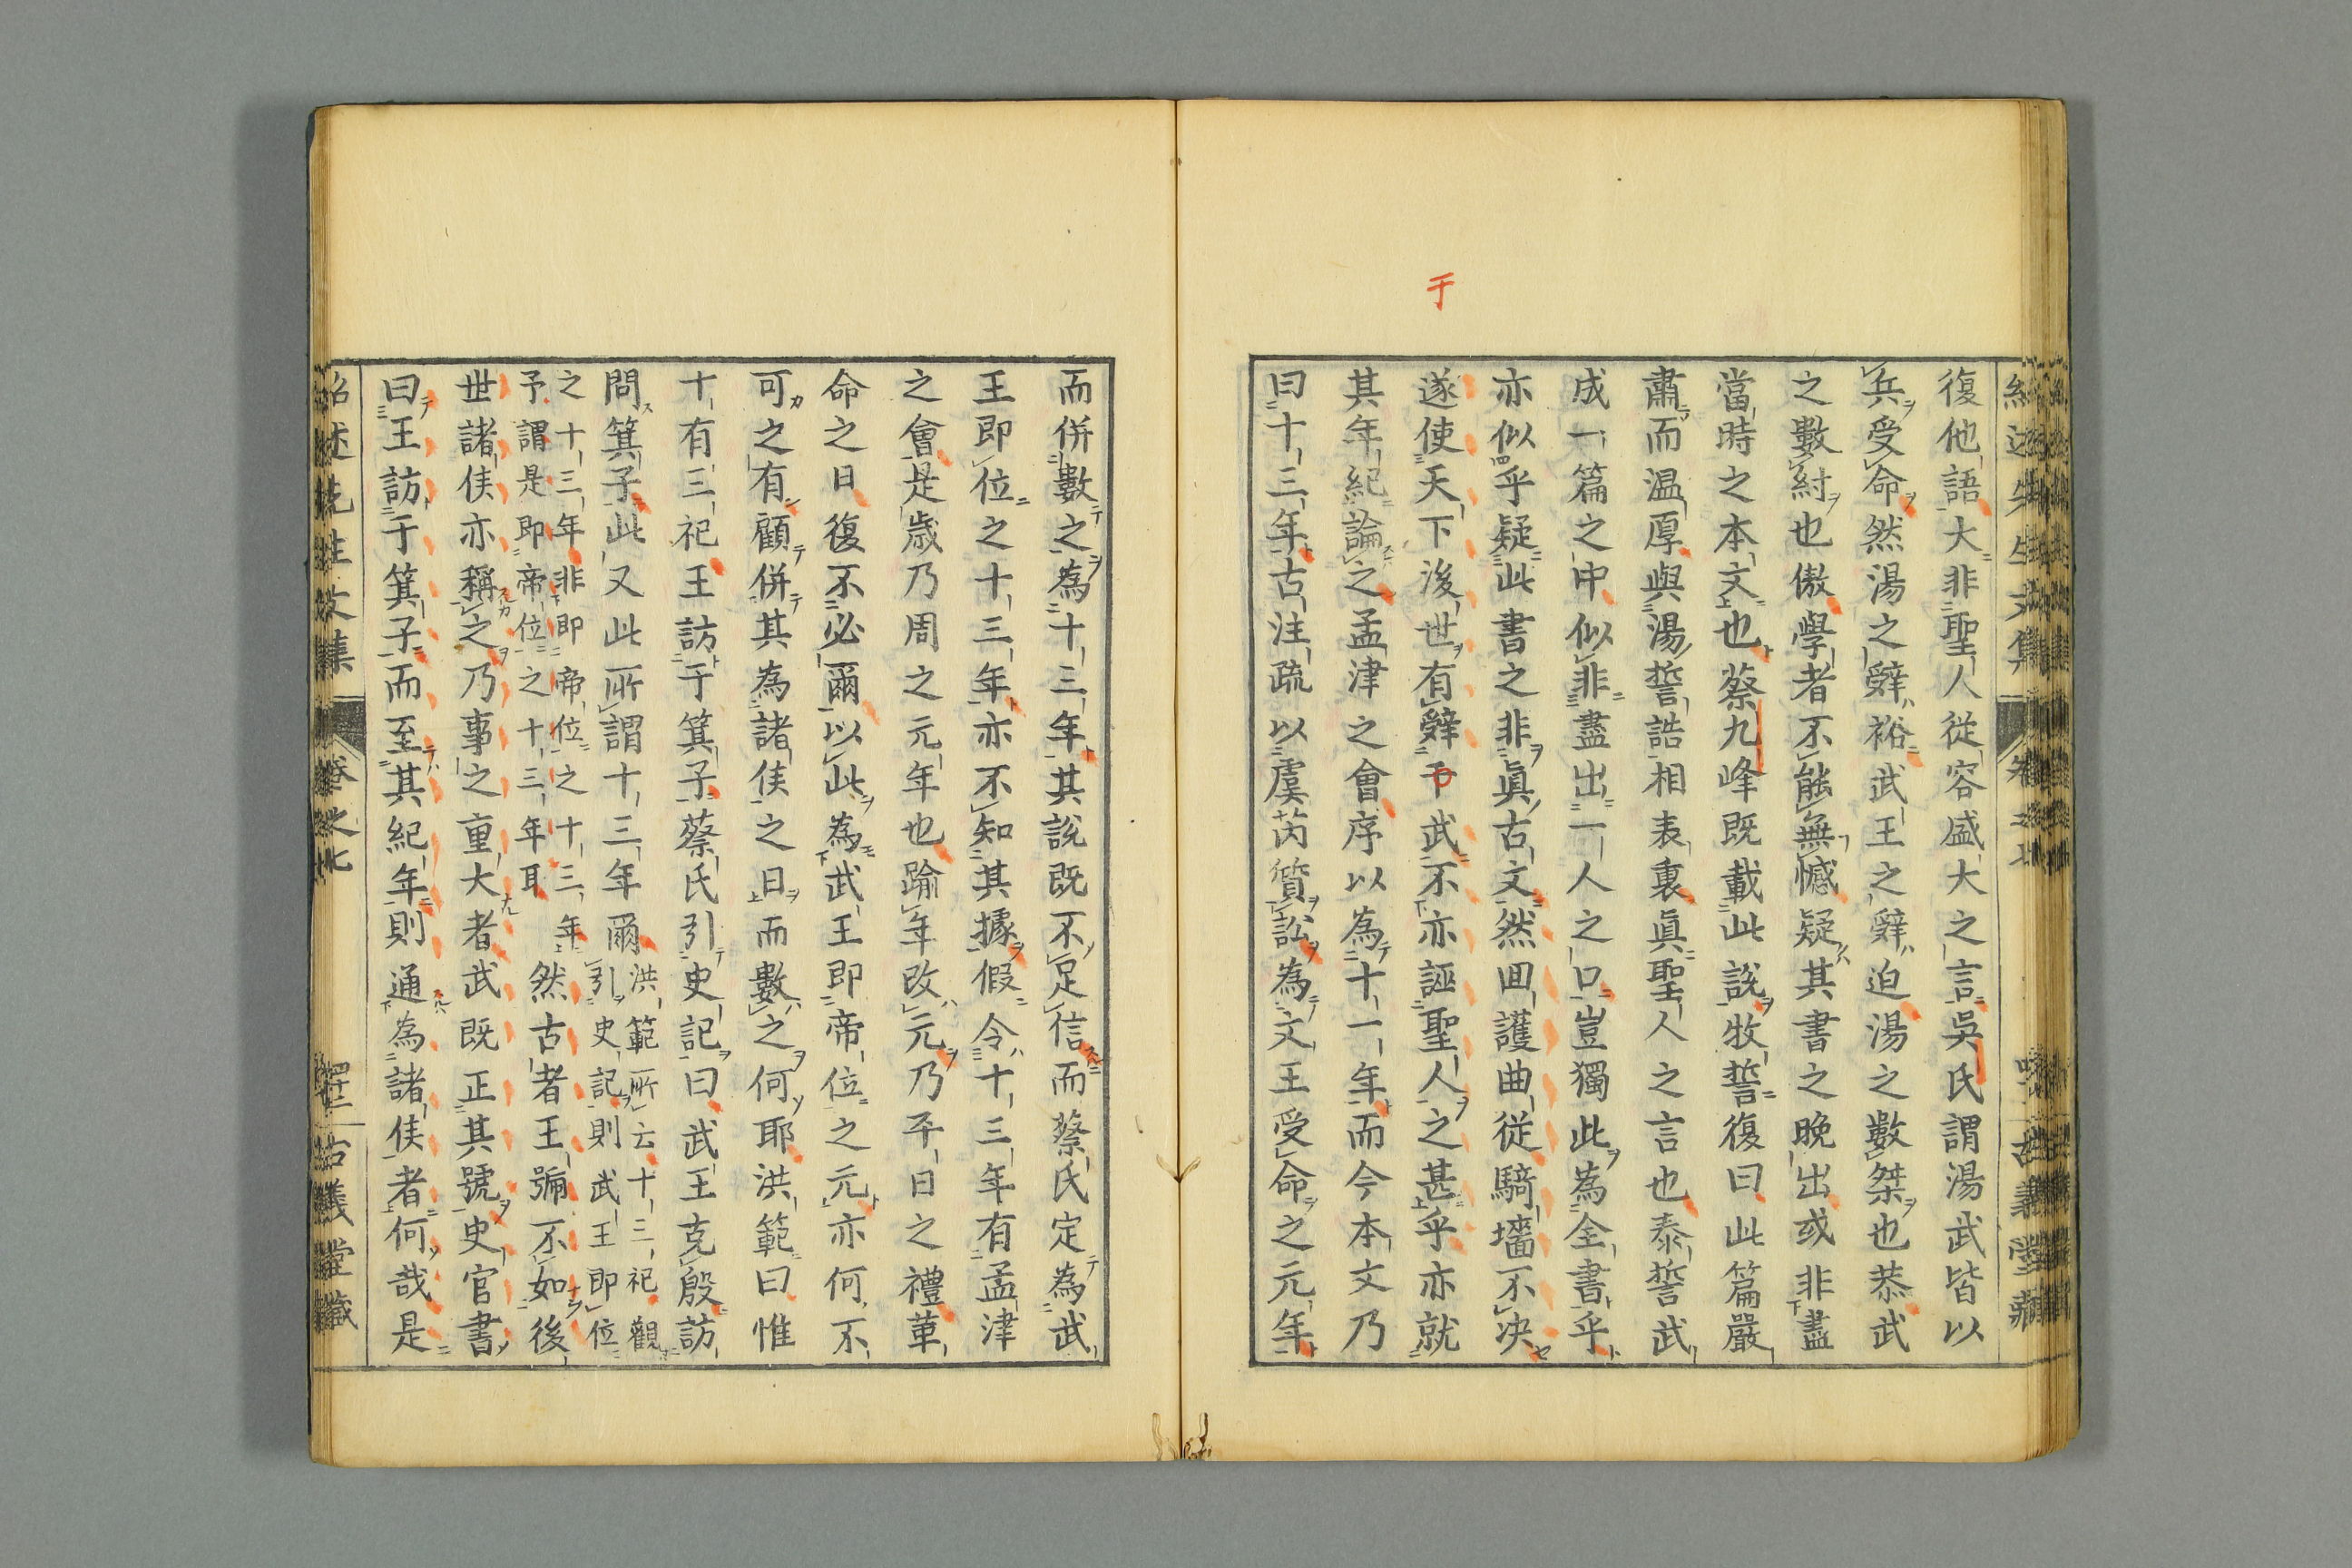 于
復他語大非聖人從容盛大之言吳氏謂湯武皆以
兵受命然湯之辭裕武王之辭迫湯之數桀也恭武
之數紂也傲學者不能無憾疑其書之晚出或非盡
當時之本文也蔡九峰既載此說牧誓復曰此篇嚴
肅而温厚與湯誓誥相表裏眞聖人之言也泰誓武
成一篇之中似非盡出一人之口豈獨此為全書乎
亦似乎疑此書之非眞古文然囬護曲從騎墻不决
遂使天下後世有辭于武不亦誣聖人之甚乎亦就
其年紀論之孟津之會序以為十一年而今本文乃
曰十三年古注疏以虞芮質訟為文王受命之元年
而併數之為十三年其說既不足信而蔡氏定為武
王即位之十三年亦不知其據假令十三年有孟津
之會是歲乃周之元年也踰年改元乃平日之禮革
命之日復不必爾以此為武王即帝位之元亦何不
可之有顧併其為諸侯之日而數之何耶洪範曰惟
十有三祀王訪于箕子蔡氏引史記曰武王克殷訪
問箕子此又此所謂十三年爾洪範所云十三祀觀
引史記則武王即位
之十三年非即帝位之十三年
予謂是即帝位之十三年耳然古者王號不如後
世諸侯亦稱之乃事之重大者武既正其號史官書
曰王訪于箕子而至其紀年則通為諸侯者何哉是
紹述先生文集
卷之七
古義堂藏